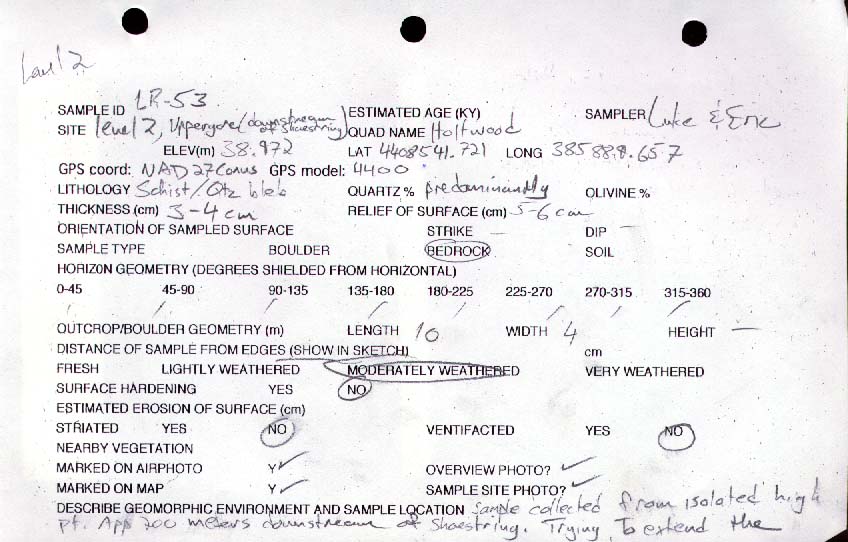 Level 2
SAMPLE ID LR-53 ESTIMATED AGE (KY) SAMPLER Luke & Eric
SITE level 2, Upper gorge (downstream of Shoestring) QUAD NAME Holtwood
ELEV(m) 38.972 LAT 4408541.721 LONG 385888.657
GPS coord: NAD27 Conus GPS model: 4400
LITHOLOGY Schist/Qtz bleb QUARTZ % predominantly OLIVINE %
THICKNESS (cm) 3-4 cm RELIEF OF SURFACE (cm) 5-6 cm
ORIENTATION OF SAMPLED SURFACE STRIKE — DIP —
SAMPLE TYPE BOULDER BEDROCK SOIL
HORIZON GEOMETRY (DEGREES SHIELDED FROM HORIZONTAL)
0-45 45-90 90-135 135-180 180-225 225-270 270-315 315-360
/ / / / / / / /
OUTCROP/BOULDER GEOMETRY (m) LENGTH 10 WIDTH 4 HEIGHT —
DISTANCE OF SAMPLE FROM EDGES (SHOW IN SKETCH) cm
FRESH LIGHTLY WEATHERED MODERATELY WEATHERED VERY WEATHERED
SURFACE HARDENING YES NO
ESTIMATED EROSION OF SURFACE (cm)
STRIATED YES NO VENTIFACTED YES NO
NEARBY VEGETATION
MARKED ON AIRPHOTO Y ✓ OVERVIEW PHOTO? ✓
MARKED ON MAP Y ✓ SAMPLE SITE PHOTO? ✓
DESCRIBE GEOMORPHIC ENVIRONMENT AND SAMPLE LOCATION Sample collected from isolated high
pt. App 200 meters downstream of Shoestring. Trying to extend the